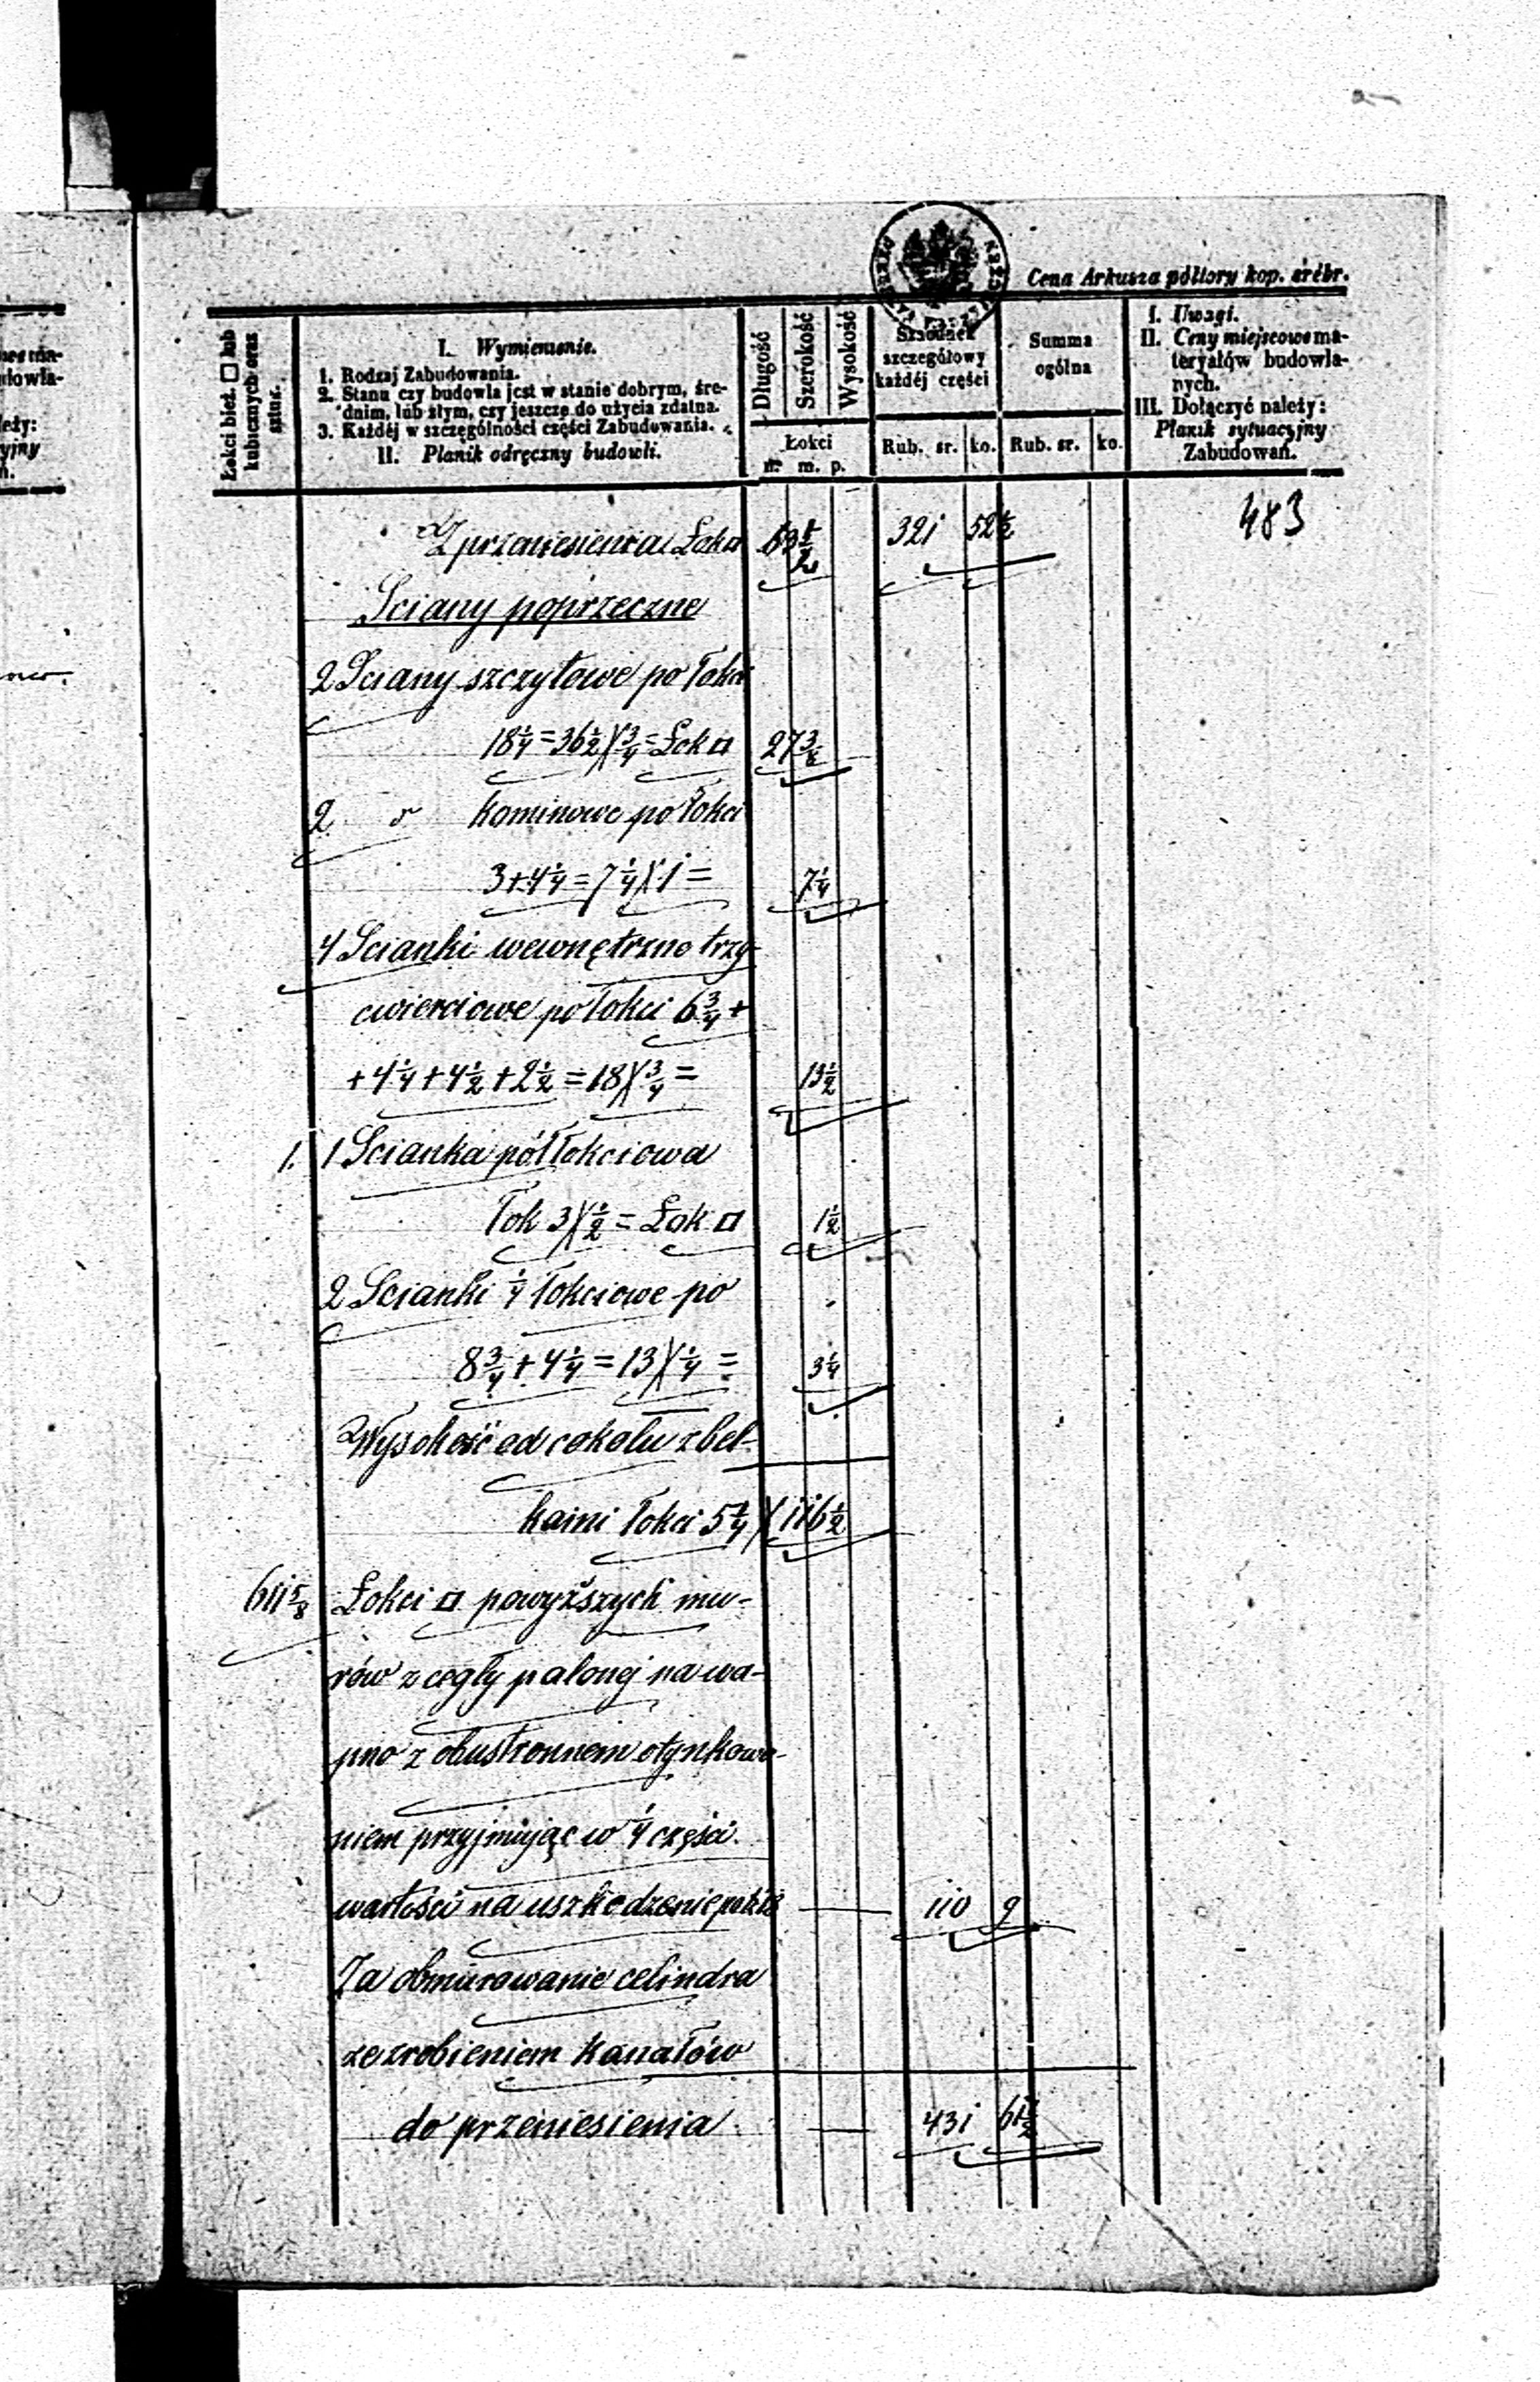 Cena Arkusza półtory kop. srebr.
Łokci bież. □ lub kubicznych oraz sztuk.
I. Wymienienie.
1. Rodzaj Zabudowania.
2. Stanu czy budowla jest w stanie dobrym, śre-
dnim, lub złym, czy jeszcze do użycia zdatna.
3. Każdéj w szczególności części Zabudowania.
II. Planik odręczny budowli.
Długość
Szerokość
Wysokość
Łokci
n. m. p.
Szacunek
szczegółowy
każdéj części
Rub. sr. ko.
Summa
ogólna
Rub. sr. ko.
I. Uwagi.
II. Ceny miejscowe ma-
teryałów budowla-
nych.
III. Dołączyć należy:
Planik sytuacyjny
Zabudowań.
483
Z przeniesienia Łok □ 63 1/2 321 52 1/2
Sciany poprzeczne
2 Sciany szczytowe po łokci
18 1/4 = 36 1/2 X 3/4 = Łok □ 27 3/8
2 " kominowe po łokci
3 + 4 1/4 = 7 1/4 X 1 = 7 1/4
4 Scianki wewnętrzne trzy-
cwierciowe po łokci 6 3/4 +
+ 4 1/4 + 4 1/2 + 2 1/2 = 18 X 3/4 = 13 1/2
1. 1 Scianka półłokciowa
łok 3 X 1/2 = Łok □ 1 1/2
2 Scianki 1/4 łokciowe po
8 3/4 + 4 1/4 = 13 X 1/4 = 3 1/4
Wysokość od cokołu z bel-
kami łokci 5 1/4 X 116 1/2
611 5/8 Łokci □ powyższych mu-
rów z cegły palonej na wa-
pno z obustronnem otynkowa-
niem przyjmując w 1/4 części
wartości na uszkodzenie — 110 9
Za obmurowanie celindra
ze zrobieniem kanałów
do przeniesienia — 431 61 1/2